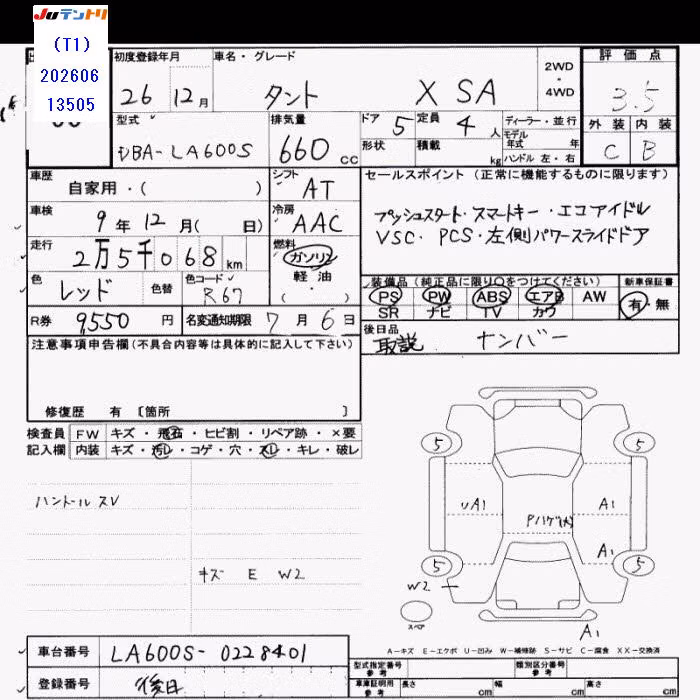 Juテントリ
(T1)
202606
13505
初度登録年月
車名・グレード
2WD
・
4WD
評価点
26 12月
タント X SA
3.5
型式
排気量
ドア 5
定員 4人
ディーラー・並行
モデル
年式 年
形状
積載 kg
ハンドル 左・右
外装 内装
DBA-LA600S
660 cc
C B
車歴
自家用・( )
シフト AT
セールスポイント (正常に機能するものに限ります)
車検
9年12月( 日)
冷房
AAC
プッシュスタート・スマートキー・エコアイドル
VSC・PCS・左側パワースライドドア
走行
2万5千068km
燃料
ガソリン
軽・油
( )
色
レッド
色替
色コード
R67
装備品 (純正品に限り○をつけてください)
新車保証書
PS PW ABS エアB AW
SR ナビ TV カワ
有・無
R券 9,550円
名変通知期限 7月6日
後日品
取説 ナンバー
注意事項申告欄 (不具合内容等は具体的に記入して下さい)
修復歴 有 [箇所 ]
検査員 FW キズ・飛石・ヒビ割・リペア跡・×要
記入欄 内装 キズ・汚レ・コゲ・穴・スレ・キレ・破レ
ハンドル スレ
キズ E W2
5 5
UA1 A1
Pハゲ(大)
A1
5 5
W2
スペア
A1
A-キズ E-エクボ U-凹み W-補修跡 S-サビ C-腐食 XX-交換済
車台番号 LA600S-0228401
登録番号 後日
型式指定番号
参考
類別区分番号
参考
車庫証明用
参考
長さ cm 幅 cm 高さ cm